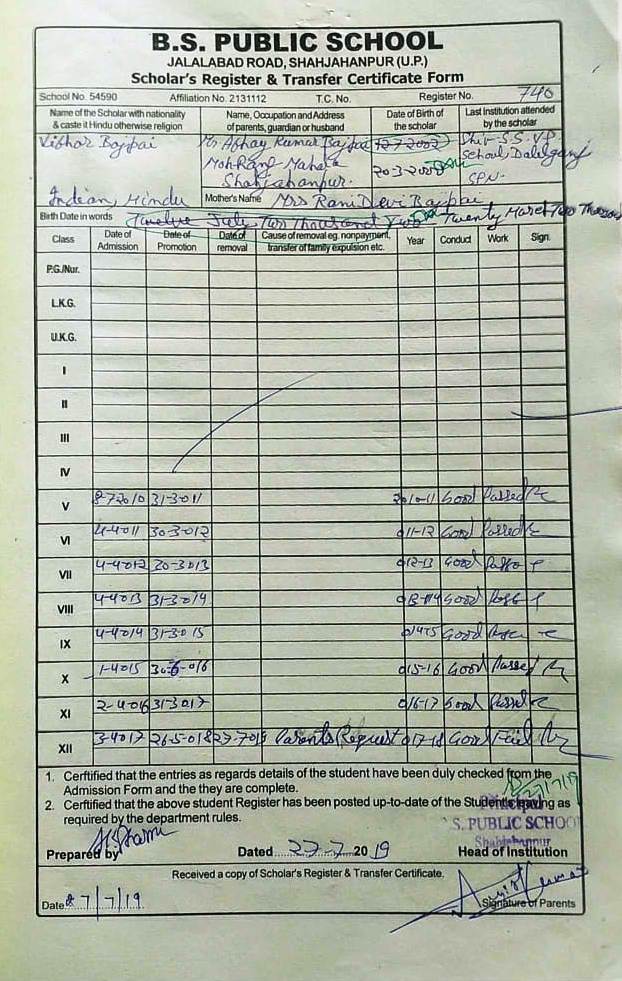 B.S. PUBLIC SCHOOL
JALALABAD ROAD, SHAHJAHANPUR (U.P.)
Scholar's Register & Transfer Certificate Form
School No. 54590 Affiliation No. 2131112 T.C. No. Register No. 740
Name of the Scholar with nationality & caste it Hindu otherwise religion
Name, Occupation and Address of parents, guardian or husband
Date of Birth of the scholar
Last Institution attended by the scholar
Vibhor Bajpai
Indian, Hindu
Mr Abhay Kumar Bajpai
Shahjahanpur.
12-7-2002
20-3-2000
School, Dalelganj
SPN.
Mother's Name Mrs Rani Devi Bajpai
Birth Date in words Twelve July Two Thousand Two Twenty March Two Thousand
Class Date of Admission Date of Promotion Date of removal Cause of removal eg. nonpayment, transfer of family expulsion etc. Year Conduct Work Sign.
P.G./Nur.
L.K.G.
U.K.G.
I
II
III
IV
V 8-7-2010 31-3-011 2010-11 Good Passed
VI 4-4-011 30-3-012 011-12 Good Passed
VII 4-4-012 30-3-013 012-13 Good
VIII 4-4-013 31-3-014 013-014 Good
IX 4-4-014 31-3-015 Good
X 1-4-015 30-6-016 015-16 Good Passed
XI 2-4-016 31-3-017 016-17 Good Passed
XII 3-4-017 26-5-018 27-7-019 Parents Request 017-18 Good Fail
1. Certified that the entries as regards details of the student have been duly checked from the
Admission Form and the they are complete.
2. Certified that the above student Register has been posted up-to-date of the Student's leaving as
required by the department rules.
27/7/19
Principal
B.S. PUBLIC SCHOOL
Shahjahanpur
Prepared by Dated 27-7-2019 Head of Institution
Received a copy of Scholar's Register & Transfer Certificate.
Date 27/7/19 Signature of Parents